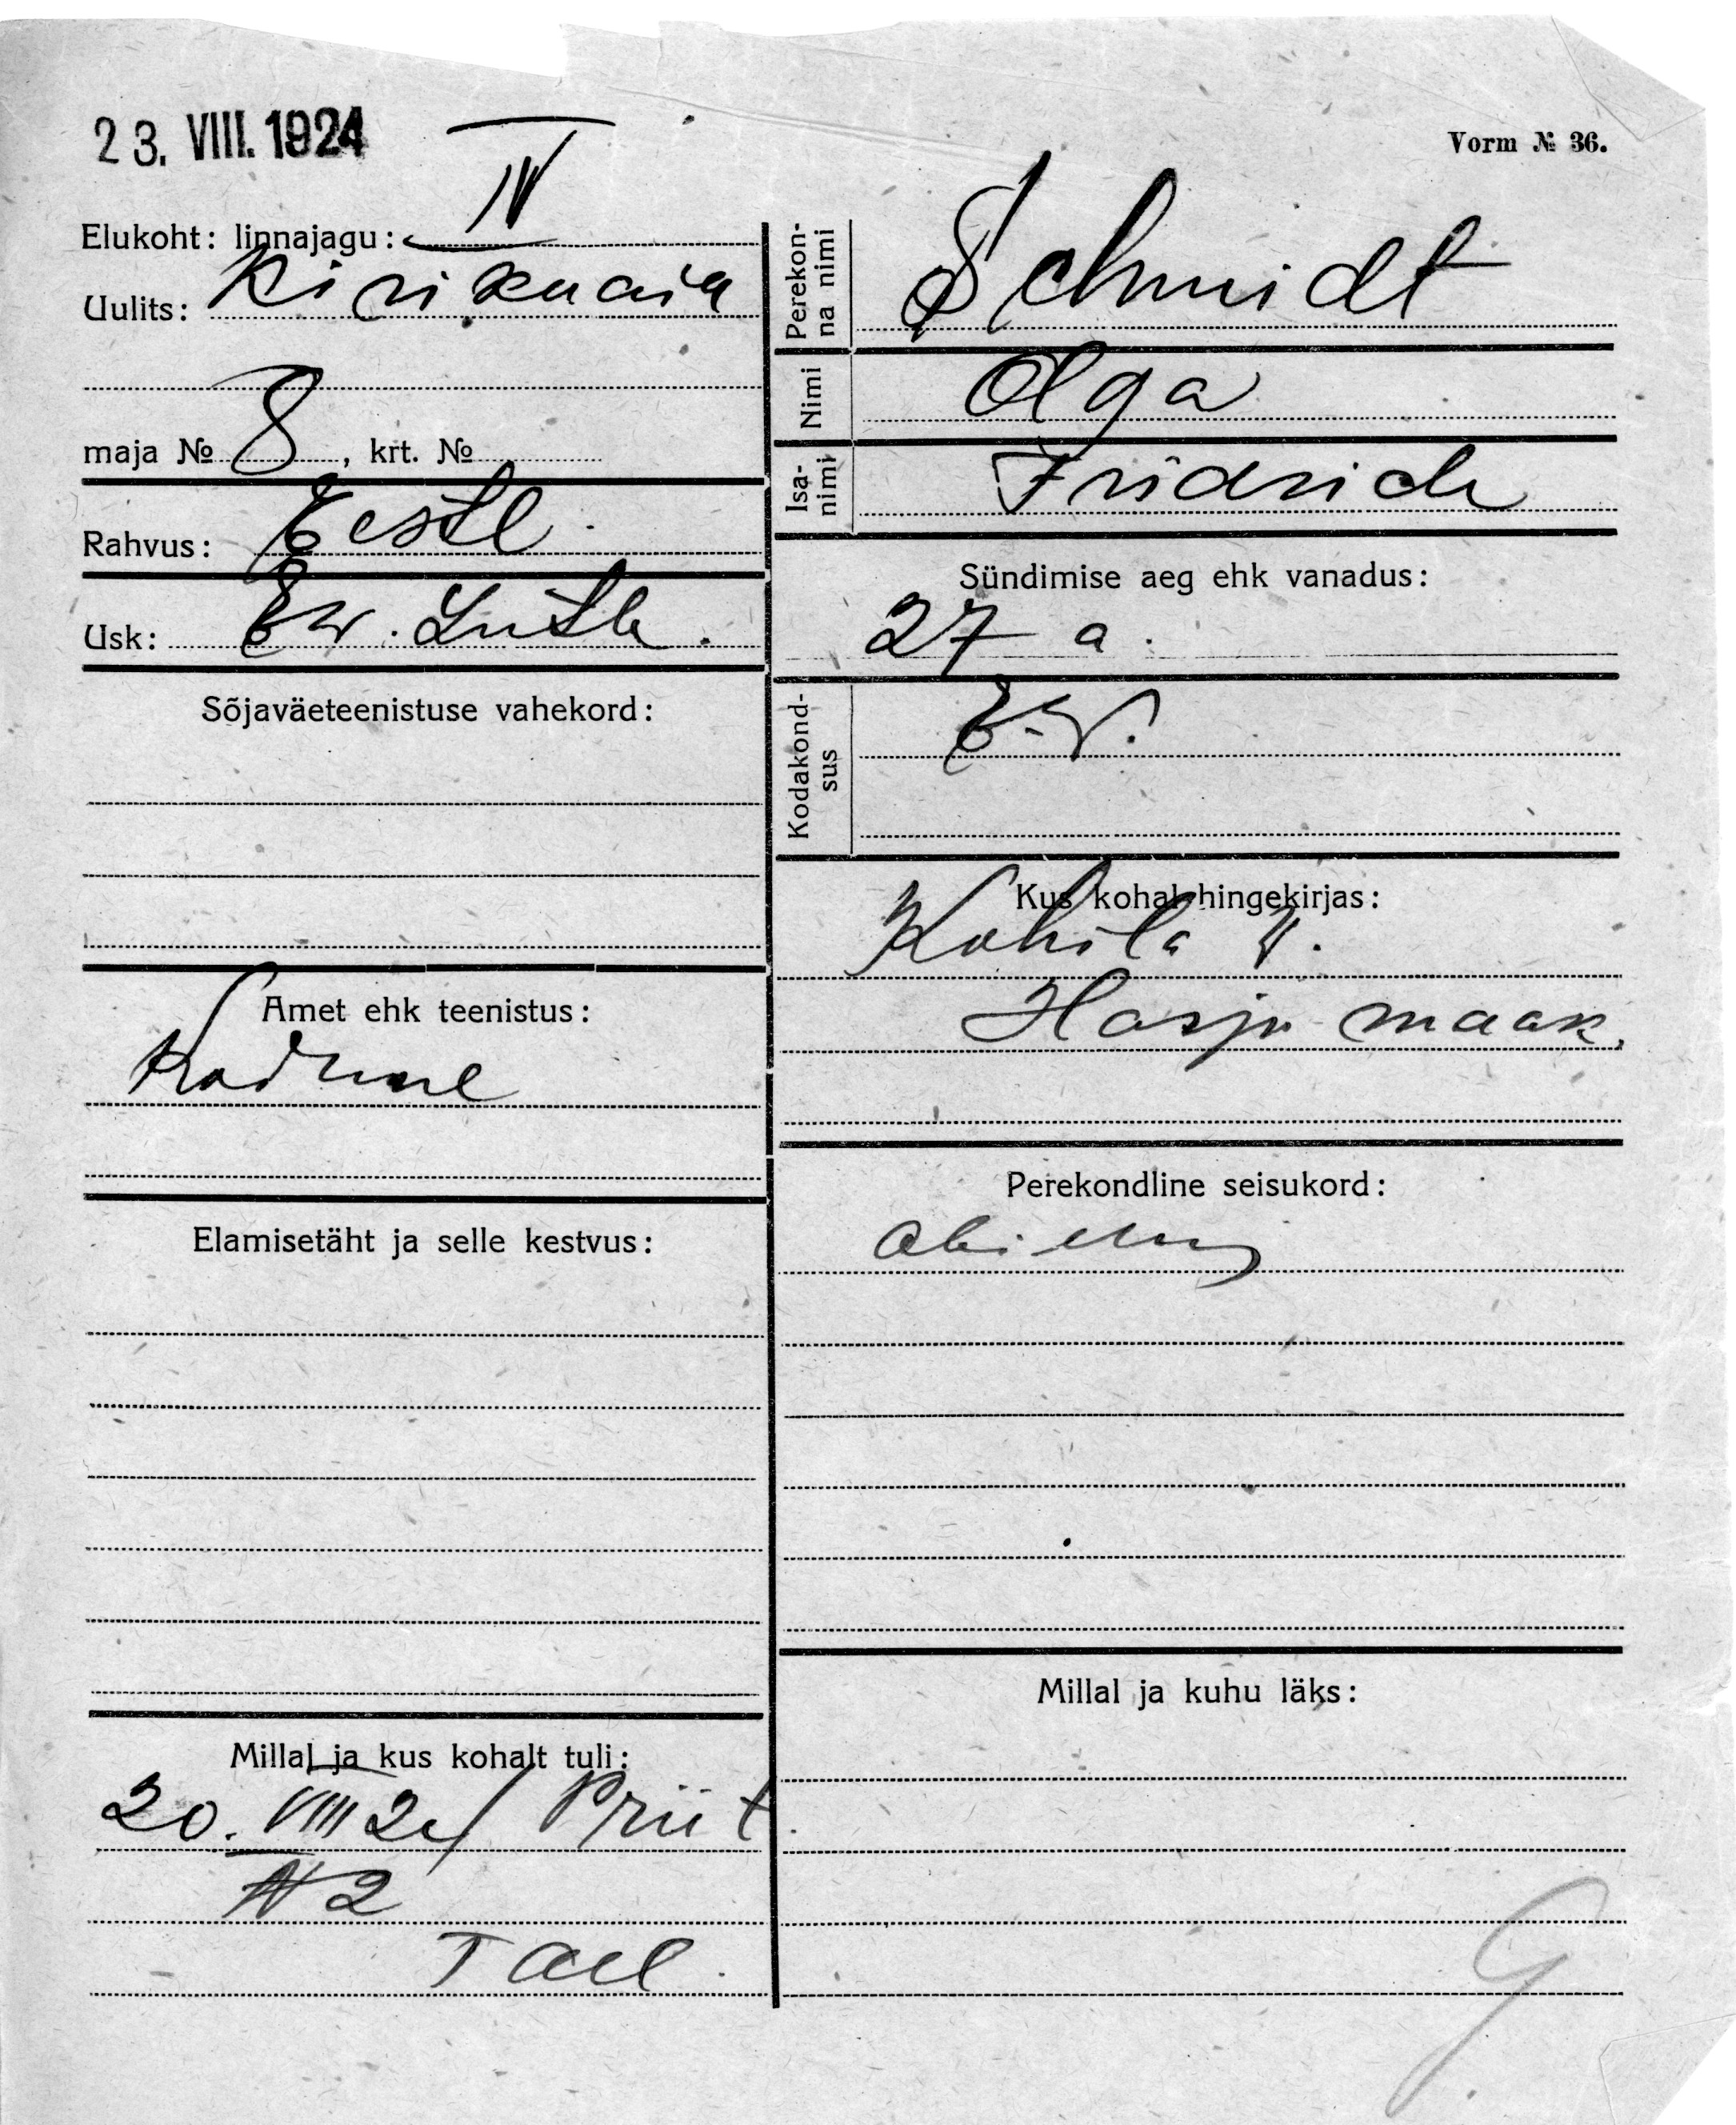 23. VIII. 1924
Vorm № 36.
Elukoht: linnajagu: IV
Uulits: Kirikuaia
maja № 8, krt. №
Rahvus: Eestl.
Usk: Ew. Luth.
Sõjaväeteenistuse vahekord:
Amet ehk teenistus:
Kodune
Elamisetäht ja selle kestvus:
Millal ja kus kohalt tuli:
20. VIII 24 Priit.
№ 2
Tall.
Perekonna nimi Schmidt
Nimi Olga
Isanimi Fridrich
Sündimise aeg ehk vanadus:
27 a.
Kodakondsus E.V.
Kus kohal hingekirjas:
Kohila v.
Harju maak.
Perekondline seisukord:
Millal ja kuhu läks: